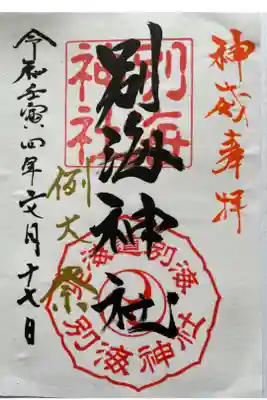 奉拝
別海神社
例大祭
令和壬寅四年
月十七日
別海神社
北海道別海
別海神社